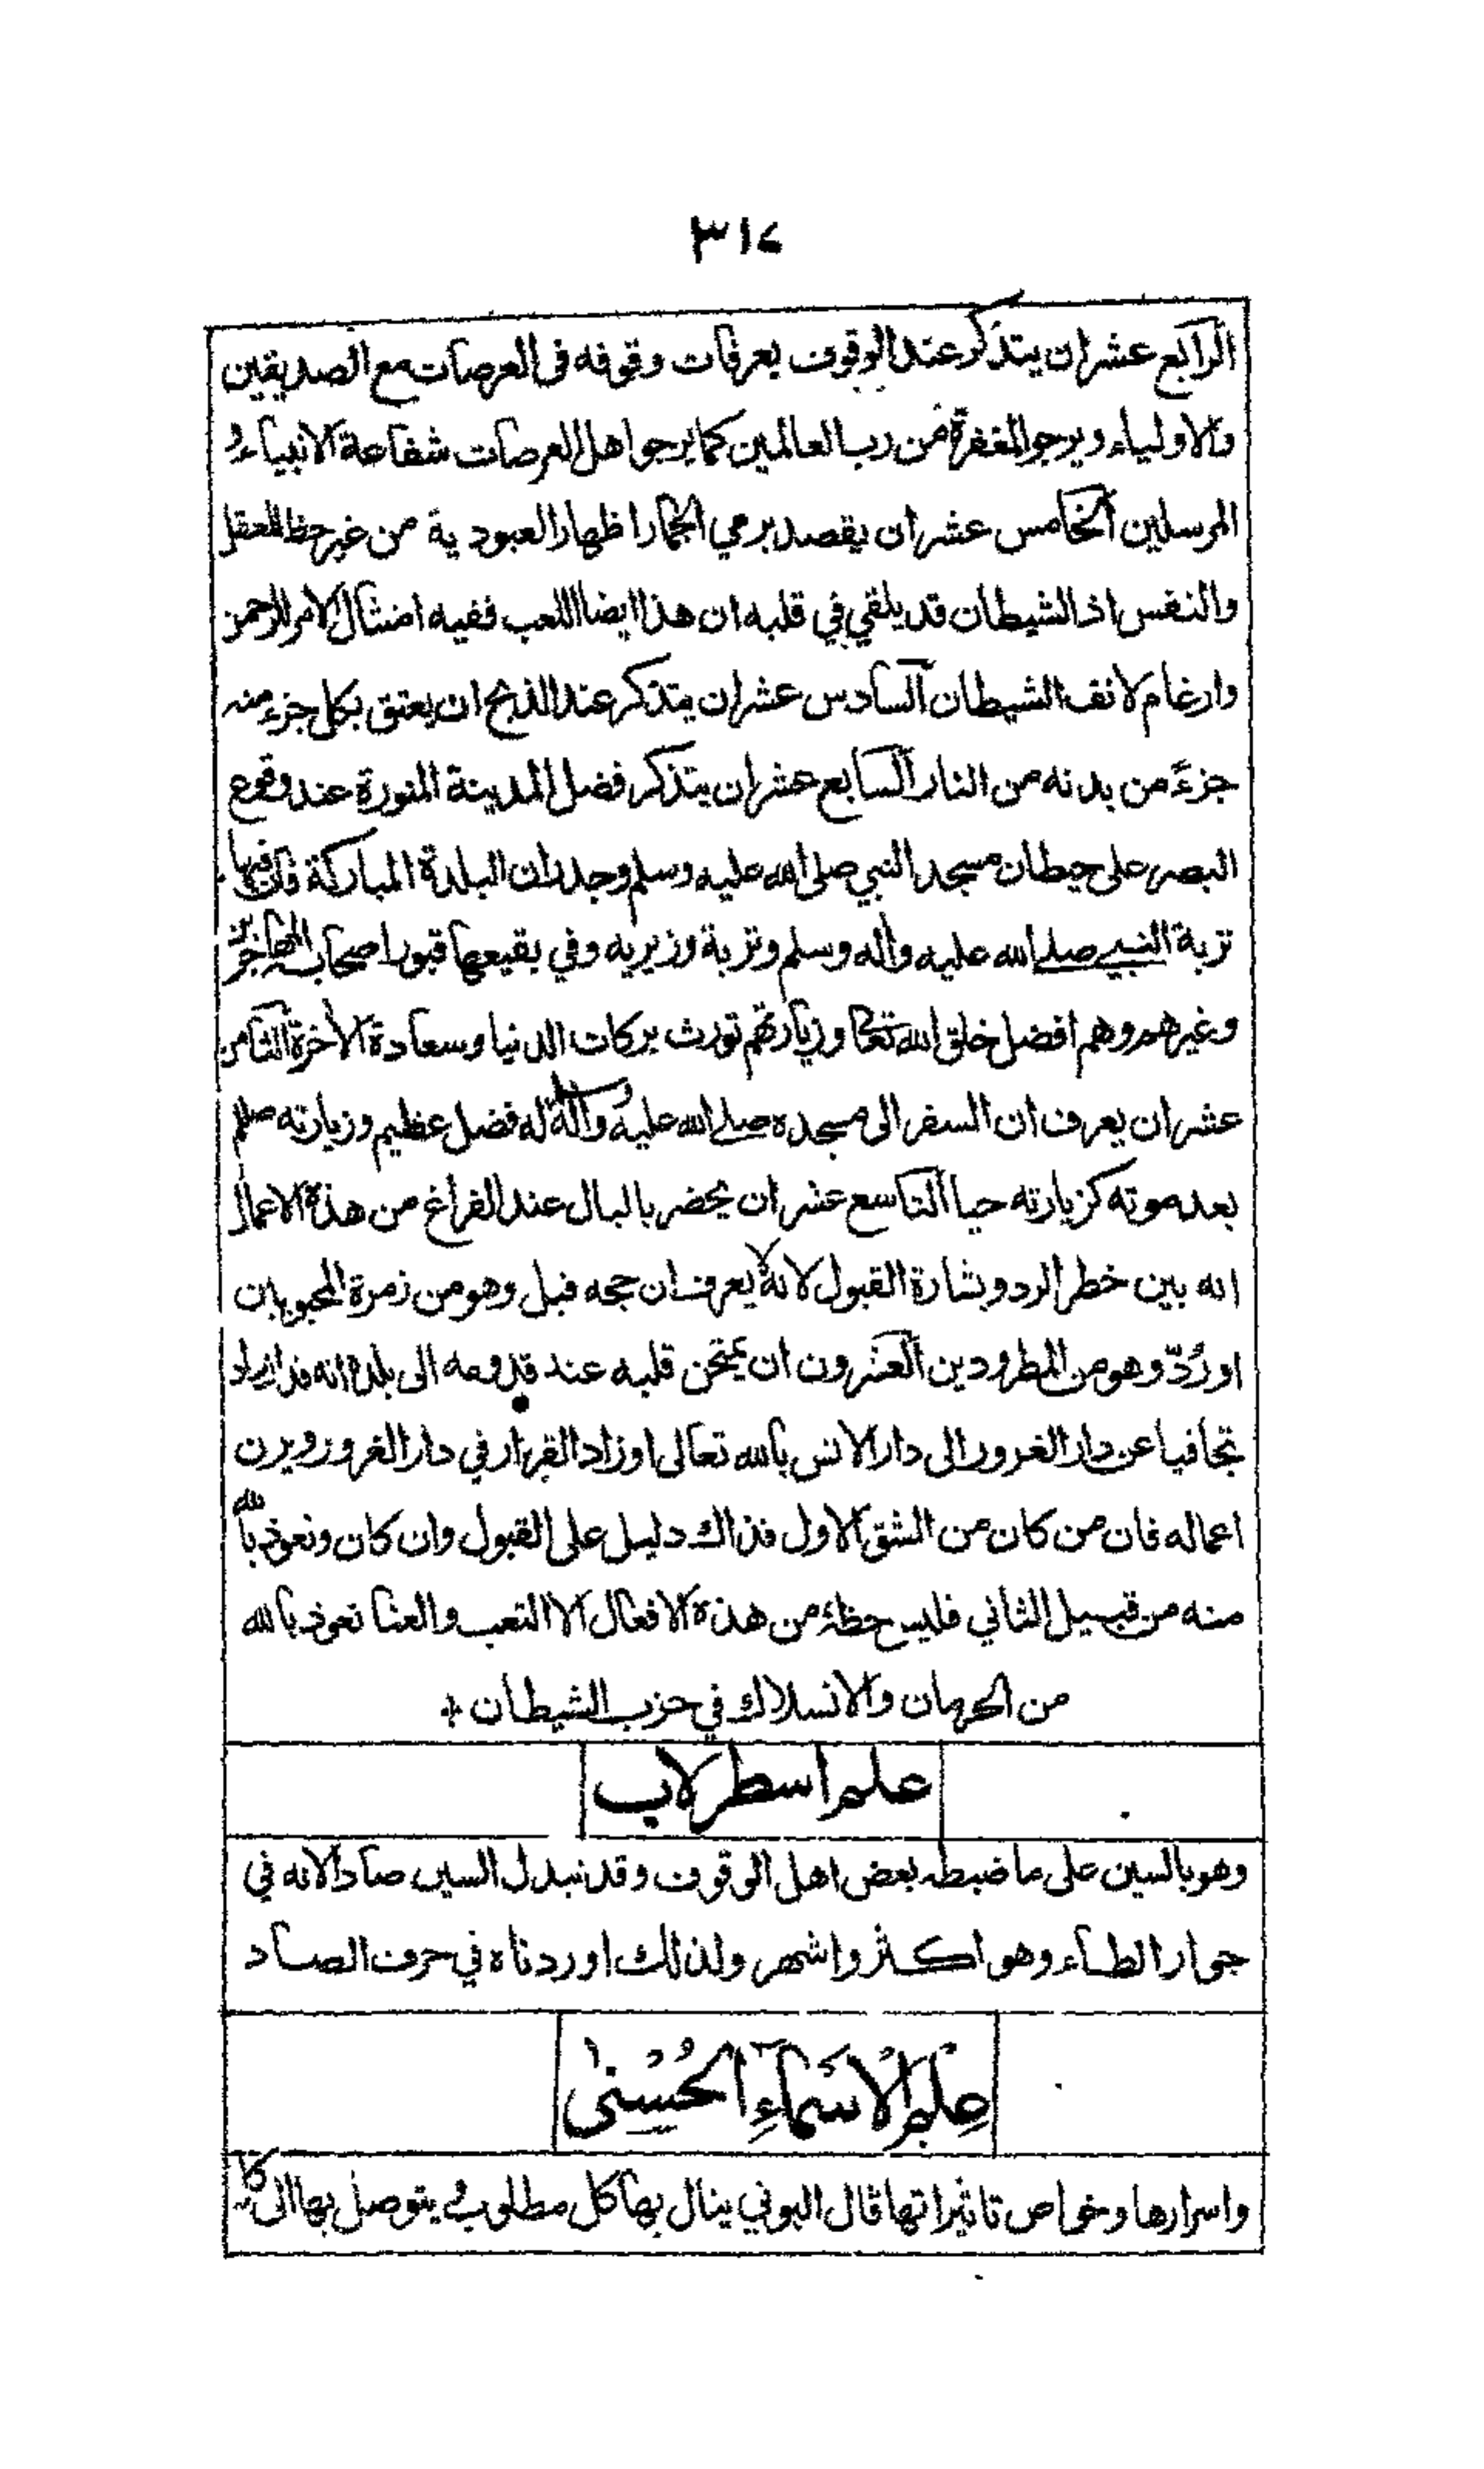 ٣١٧
الرابع عشر ان يتذكر عند الوقوف بعرفات وقوفه فى العرصات مع الصديقين
والاولياء ويرجو المغفرة من رب العالمين كما يرجو اهل العرصات شفاعة الانبياء و
المرسلين الخامس عشر ان يقصد برمي الجمار اظهار العبودية من غير حظ للعقل
والنفس اذ الشيطان قد يلقي في قلبه ان هذا ايضا اللعب ففيه امتثال لامر الرحمن
وارغام لانف الشيطان السادس عشر ان يتذكر عند الذبح ان يعتق بكل جزء منه
جزءً من بدنه من النار السابع عشر ان يتذكر فضل المدينة المنورة عند وقوع
البصر على حيطان مسجد النبي صلى الله عليه وسلم وجدران البلدة المباركة فان فيها
تربة النبي صلى الله عليه واله وسلم وتربة وزيريه وفي بقيعها قبور اصحابه
وغيرهم وهم افضل خلق الله تعالى وزيارتهم تورث بركات الدنيا وسعادة الأخرة الثامن
عشر ان يعرف ان السفر الى مسجده صلى الله عليه واله وسلم له فضل عظيم وزيارته صلعم
بعد موته كزيارته حيا التاسع عشر ان يحضر بالبال عند الفراغ من هذه الاعمال
انه بين خطر الرد وبشارة القبول لانه لا يعرف ان حجه قبل وهو من زمرة المحبوبين
او رُدّ وهو من المطرودين العشرون ان يمتحن قلبه عند قدومه الى بلده انه قد ازداد
تجافيا عن دار الغرور الى دار الانس بالله تعالى او زاد القرار في دار الغرور ويزن
اعماله فان من كان من الشق الاول فذاك دليل على القبول وان كان ونعوذ بالله
منه من قبيل الثاني فليس حظه من هذه الافعال الا التعب والعنا نعوذ بالله
من الحرمان والانسلاك في حزب الشيطان +
علم اسطرلاب
وهو بالسين على ما ضبطه بعض اهل الوقوف وقد تبدل السين صادا لانه في
جوار الطاء وهو اكثر واشهر ولذلك اوردناه في حرف الصاد
عِلْمُ الْاَسْمَآءِ الْحُسْنٰى
واسرارها وخواص تاثيراتها قال البوني ينال بها كل مطلوب يتوصل بها الى كل